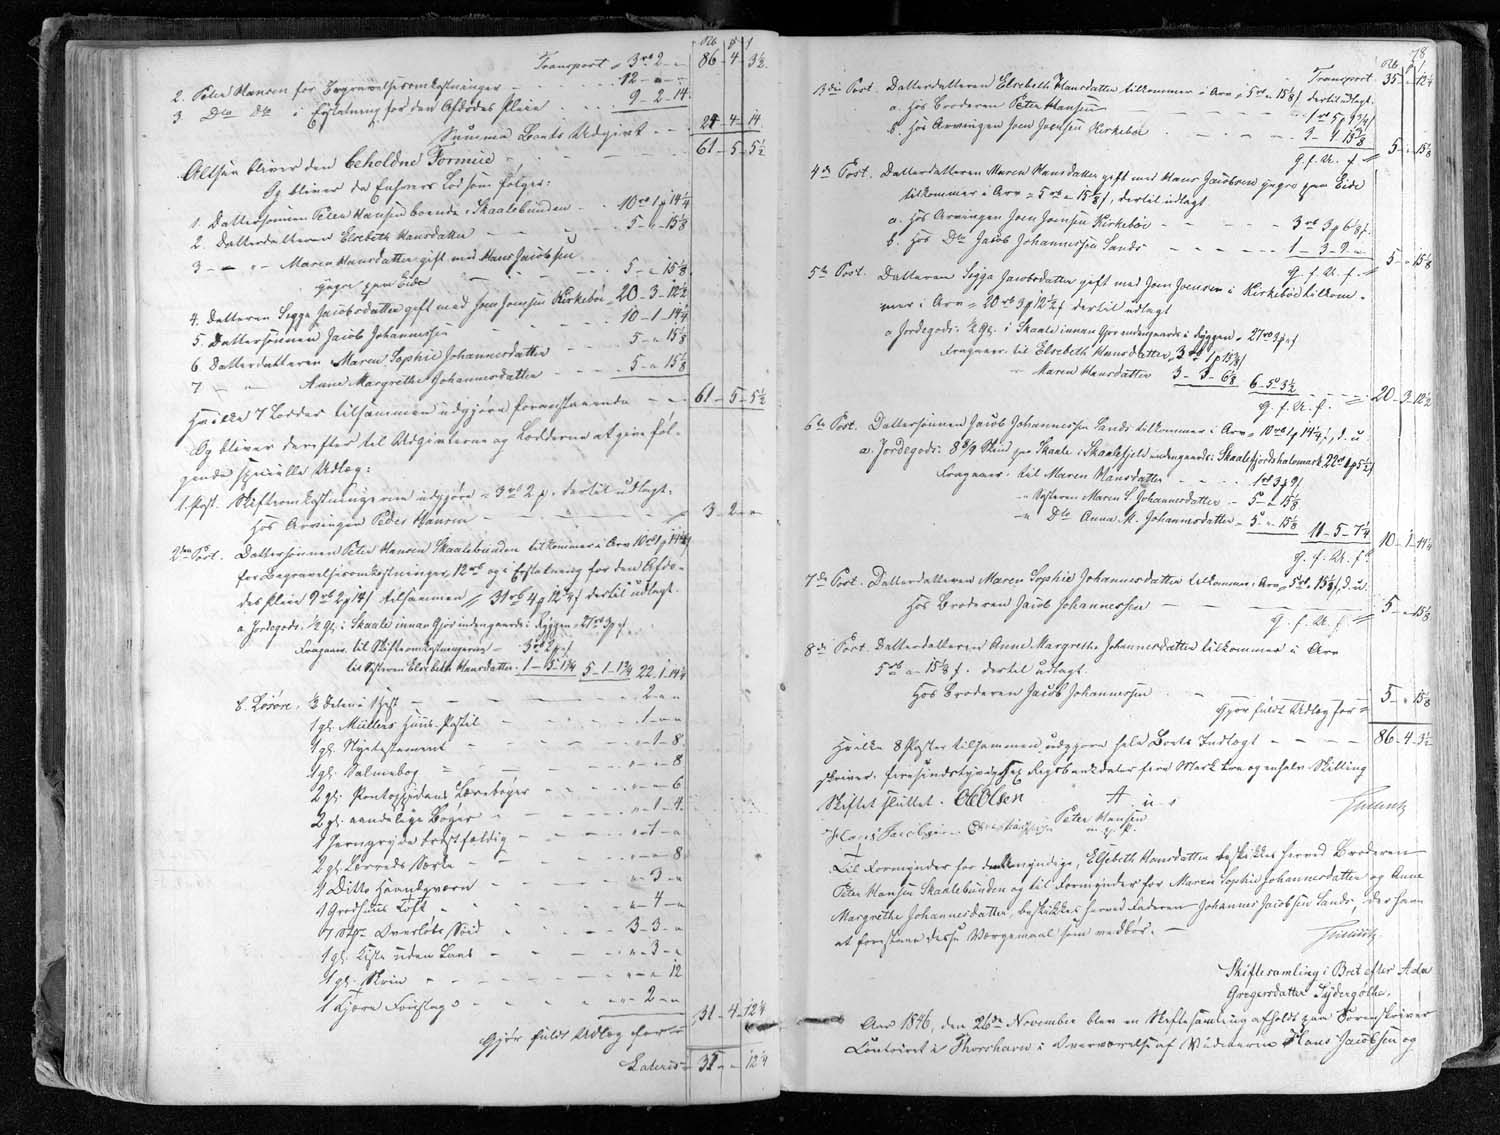 Rb ß
Transport 3rb 2 - 86 - 4 - 3½
2. Peter Hansen for Begravelsesomkostninger - 12 - " -
3. Dto Dto i Erstatning for den Afdødes Pleie 9 - 2 - 14
Summa Boets Udgivt - - 24 - 4 - 14
Altsaa bliver den beholdne Formue - - 61 - 5 - 5½
Og bliver da Enhvers Lod som følger:
1. Dattersønnen Peter Hansen boende i Skaalebunden - - 10rb 1ß 14¼
2. Datterdatteren Elsebeth Hansdatter - - 5 - " - 15⅛
3 - " - Maren Hansdatter gift med Hans Jacobsen
yngre paa Eide - - 5 - " 15⅛
4. Datteren Sigga Jacobsdatter gift med Joen Joensen Kirkebøe 20 - 3 - 12½
5 Dattersønnen Jacob Johannesen - - 10 - 1 - 14¼
6 Datterdatteren Maren Sophie Johannesdatter - - 5 - " 15⅛
7 " " Anne Margrethe Johannesdatter - - 5 - " 15⅛
Hvilke 7 Lodder tilsammen udgjøre foranstaaende - - 61 - 5 - 5½
Og bliver derefter til Udgifterne og Lodderne at give føl-
gende specielle Udlæg:
1. Post. Skifteomkostningerne udgjøre 3rb 2ß. dertil udlagt:
Hos Arvingen Peder Hansen - - 3 - 2 - "
2den Post. Dattersønnen Peter Hansen Skaalebunden tilkommer i Arv 10rb 1ß 14¼
for Begravelsesomkostninger 12rb og i Erstatning for den Afdø-
des Pleie 9rb 2ß 14 tilsammen 31rb 4ß 12¼ dertil udlagt.
a Jordegods. ½ Gl. i Skaale innan Gjor indengaards i Ryggen 27rb 3ß
Fragaaer til Skifteomkostningerne - 3rb 2ß
til Søsteren Elsebeth Hansdatter 1 - 5 - 1¾ 5 - 1 - 1¾ 22 - 1 - 14¼
b. Løsøre, ½ Delen i 1 Hest - - 2 - " - "
1 gl. Müllers Huus-Postil - - 1 - " - "
1 gl. Nyetestament - - " - 1 - 8
1 gl. Salmebog - - " - " - 8
2 gl. Pontoppidans Lærebøger - - " - " - 6
2 gl. aandelige Bøger - - " - 1 - 4
1 Jerngryde brøstfældig - - " - 1 - "
2 gl. Lærreds - - " - " 8
1 Ditto Haandqværn - - " - 3 - "
1 Grødhuus Loft - - " - 4 - "
7 - - 3 - 3 - "
1 gl. Kiste uden Laas - - " - 3 - "
1 gl. Skrin - - " - " 12
1 - - " 2 - " 31 - 4 - 12¼
Gjør fuldt Udlæg for
Lateris 31 - " - 12¼
78
Rb
Transport 35 - " - 12¼
3die Post. Datterdatteren Elsebeth Hansdatter tilkommer i Arv 5rb " 15⅛ dertil udlagt:
a. Hos Broderen Peter Hansen - - 1rb 5ß 1¾
b. Hos Arvingen Joen Joensen Kirkebøe - - 3 - 1 13⅜
G. f. U. f. 5 - " - 15⅛
4de Post. Datterdatteren Maren Hansdatter gift med Hans Jacobsen yngre paa Eide
tilkommer i Arv 5rb " 15⅛, dertil udlagt
a. Hos Arvingen Joen Joensen Kirkebøe - - 3rb 3ß 6⅛
b. Hos Dto Jacob Johannesen Sands - - 1 - 3 - 9
G. f. U. f. 5 - " - 15⅛
5te Post. Datteren Sigga Jacobsdatter gift med Joen Joensen i Kirkebøe tilkom-
mer i Arv 20rb 3ß 12½ dertil udlagt
a Jordegods: ½ Gl. i Skaale innan Gjor indengaards i Ryggen 27rb 3ß
Fragaaer til Elsebeth Hansdatter 3rb 1ß 13⅜
" Maren Hansdatter 3 - 3 - 6⅛ 6 - 5 3½
G. f. U. f. 20 - 3 - 12½
6te Post. Dattersønnen Jacob Johannesen Sands tilkommer i Arv 10rb 1ß 14¼, d. u.
a. Jordegods: 8 8/9 Skind paa Skaale i Skaalefjeld indengaards i Skaalefjordshalvmark 22rb 1ß 5½
Fragaaer: til Maren Hansdatter - - 1rb 3ß 9
" Søsteren Maren S. Johannesdatter - 5 - " - 15⅛
" Dto Anna M. Johannesdatter - 5 - " 15⅛ 11 - 5 - 7¼
G. f. U. f. 10 - 1 - 14¼
7de Post. Datterdatteren Maren Sophie Johannesdatter tilkommer i Arv 5rb " 15⅛, d. u.
Hos Broderen Jacob Johannesen - - 5 - " 15⅛
G. f. U. f.
8de Post. Datterdatteren Anne Margrethe Johannesdatter tilkommer i Arv
5rb " 15⅛ ß. dertil udlagt.
Hos Broderen Jacob Johannesen - - 5 - " 15⅛
Gjør fuldt Udlæg for
Hvilke 8 Poster tilsammen udgjøre hele Boets Indtægt - - 86 - 4 - 3½
skriver: firesindstyve og sex Rigsbankdaler fire Mark tre og en halv Skilling
Skiftet sluttet. O Olsen A. u. s
Hans Jacobsen Peter Hansen
m. f. P.
Til Formynder for den umyndige, Elsebeth Hansdatter beskikkes herved Broderen
Peter Hansen Skaalebunden og til Formynder for Maren Sophie Johannesdatter og Anne
Margrethe Johannesdatter, beskikkes herved Faderen Johannes Jacobsen Sands, der have
at forestaae dette Værgemaal som vedbør. -
Skiftesamling i Boet efter Ada
Gregersdatter Sydergøthe.
Aar 1846, den 26de November blev en Skiftesamling afholdt paa Sorenskriver
Contoiret i Thorshavn i Overværelse af Vidnerne Hans Jacobsen og